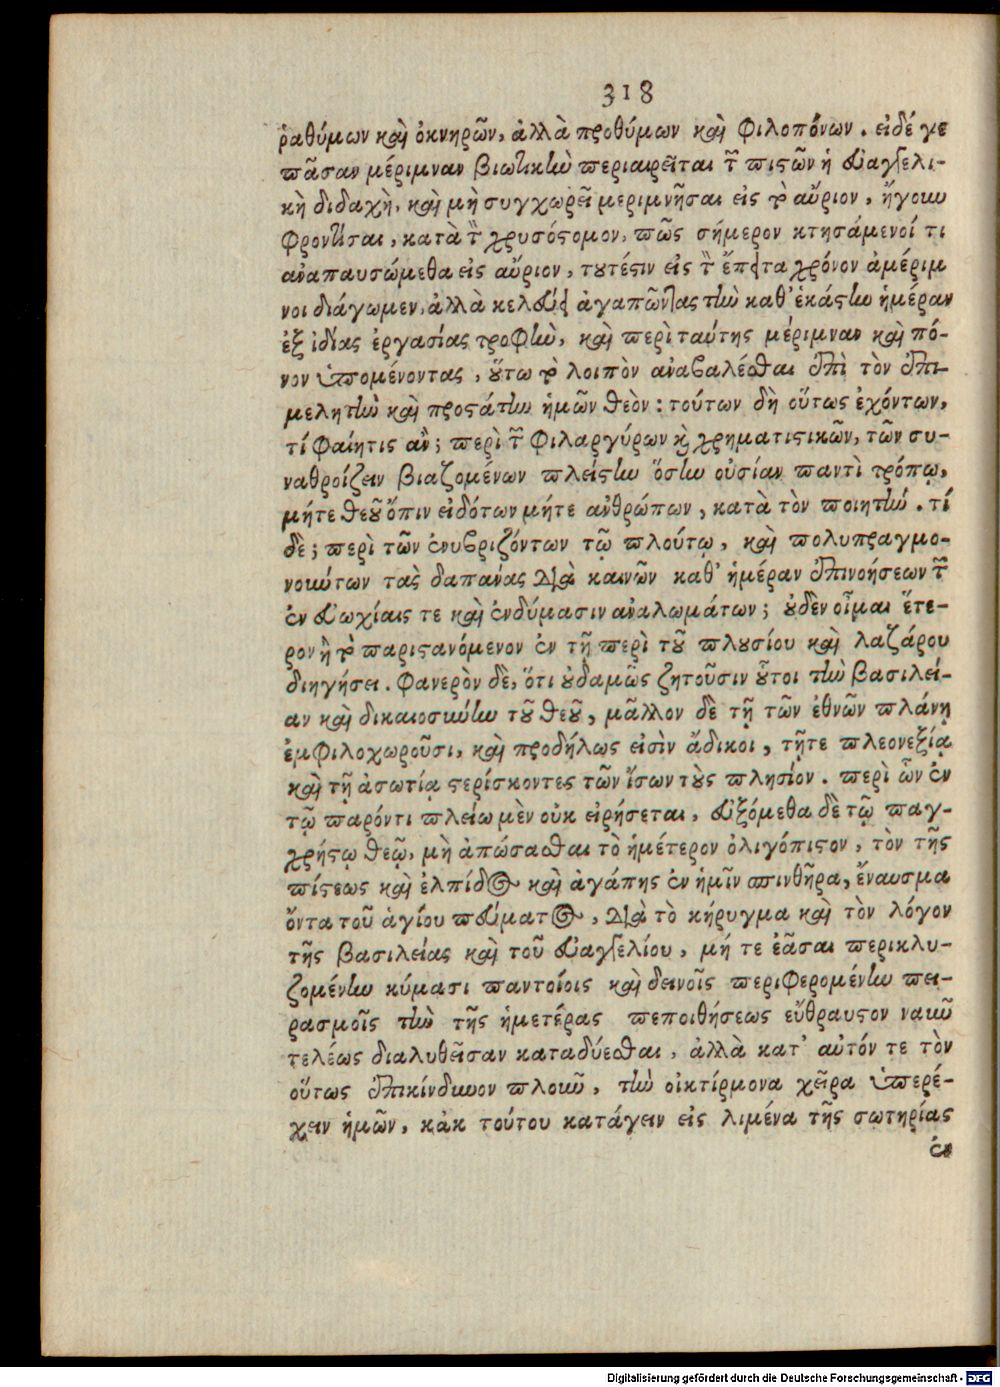 318
ῥαθύμων καὶ ὀκνηρῶν, ἀλλὰ προθύμων καὶ φιλοπόνων. εἰδέ γε
πᾶσαν μέριμναν βιωτικὴν περιαιρεῖται τ῀ πιστῶν ἡ εὐαγγελι-
κὴ διδαχὴ, καὶ μὴ συγχωρεῖ μεριμνῆσαι εἰς τὸ αὔριον, ἤγουν
φροντίσαι, κατὰ τὸν χρυσόστομον, πῶς σήμερον κτησάμενοί τι
ἀναπαυσώμεθα εἰς αὔριον, τουτέστιν εἰς τὸν ἔπειτα χρόνον ἀμέριμ
νοι διάγωμεν, ἀλλὰ κελεύει ἀγαπῶντας τὴν καθ' ἑκάστην ἡμέραν
ἐξ ἰδίας ἐργασίας τροφὴν, καὶ περὶ ταύτης μέριμναν καὶ πό-
νον ὑπομένοντας, οὕτω τὸ λοιπὸν ἀναβαλέσθαι ἐπὶ τὸν ἐπι-
μελητὴν καὶ προστάτην ἡμῶν θεὸν: τούτων δὴ οὕτως ἐχόντων,
τί φαίητις ἂν; περὶ τ῀ φιλαργύρων κ̀ χρηματιστικῶν, τῶν συ-
ναθροίζειν βιαζομένων πλείστην ὅστην οὐσίαν παντὶ τρόπῳ,
μήτε θεοῦ ὄπιν εἰδότων μήτε ἀνθρώπων, κατὰ τὸν ποιητήν. τί
δέ; περὶ τῶν ἐνυβριζόντων τῷ πλούτῳ, καὶ πολυπραγμο-
νούντων τὰς δαπάνας διὰ καινῶν καθ' ἡμέραν ἐπινοήσεων τ῀
ἐν εὐωχίαις τε καὶ ἐνδύμασιν ἀναλωμάτων; οὐδὲν οἶμαι ἕτε-
ρον ἢ τὸ παριστανόμενον ἐν τῇ περὶ τοῦ πλουσίου καὶ λαζάρου
διηγήσει. φανερὸν δὲ, ὅτι οὐδαμῶς ζητοῦσιν οὗτοι τὴν βασιλεί-
αν καὶ δικαιοσύνην τοῦ θεοῦ, μᾶλλον δὲ τῇ τῶν ἐθνῶν πλάνῃ
ἐμφιλοχωροῦσι, καὶ προδήλως εἰσὶν ἄδικοι, τῇτε πλεονεξίᾳ
καὶ τῇ ἀσωτίᾳ στερίσκοντες τῶν ἴσων τοὺς πλησίον. περὶ ὧν ἐν
τῷ παρόντι πλείω μὲν οὐκ εἰρήσεται, εὐξόμεθα δὲ τῷ παγ-
χρήστῳ θεῷ, μὴ ἀπώσασθαι τὸ ἡμέτερον ὀλιγόπιστον, τὸν τῆς
πίστεως καὶ ἐλπίδος καὶ ἀγάπης ἐν ἡμῖν σπινθῆρα, ἔναυσμα
ὄντα τοῦ ἁγίου πνεύματος, διὰ τὸ κήρυγμα καὶ τὸν λόγον
τῆς βασιλείας καὶ τοῦ εὐαγγελίου, μή τε ἐᾶσαι περικλυ-
ζομένην κύμασι παντοίοις καὶ δεινοῖς περιφερομένην πει-
ρασμοῖς τὴν τῆς ἡμετέρας πεποιθήσεως εὔθραυστον ναῦν
τελέως διαλυθεῖσαν καταδύεσθαι, ἀλλὰ κατ' αὐτόν τε τὸν
οὕτως ἐπικίνδυνον πλοῦν, τὴν οἰκτίρμονα χεῖρα ὑπερέ-
χειν ἡμῶν, κἀκ τούτου κατάγειν εἰς λιμένα τῆς σωτηρίας
ἐν
Digitalisierung gefördert durch die Deutsche Forschungsgemeinschaft - DFG